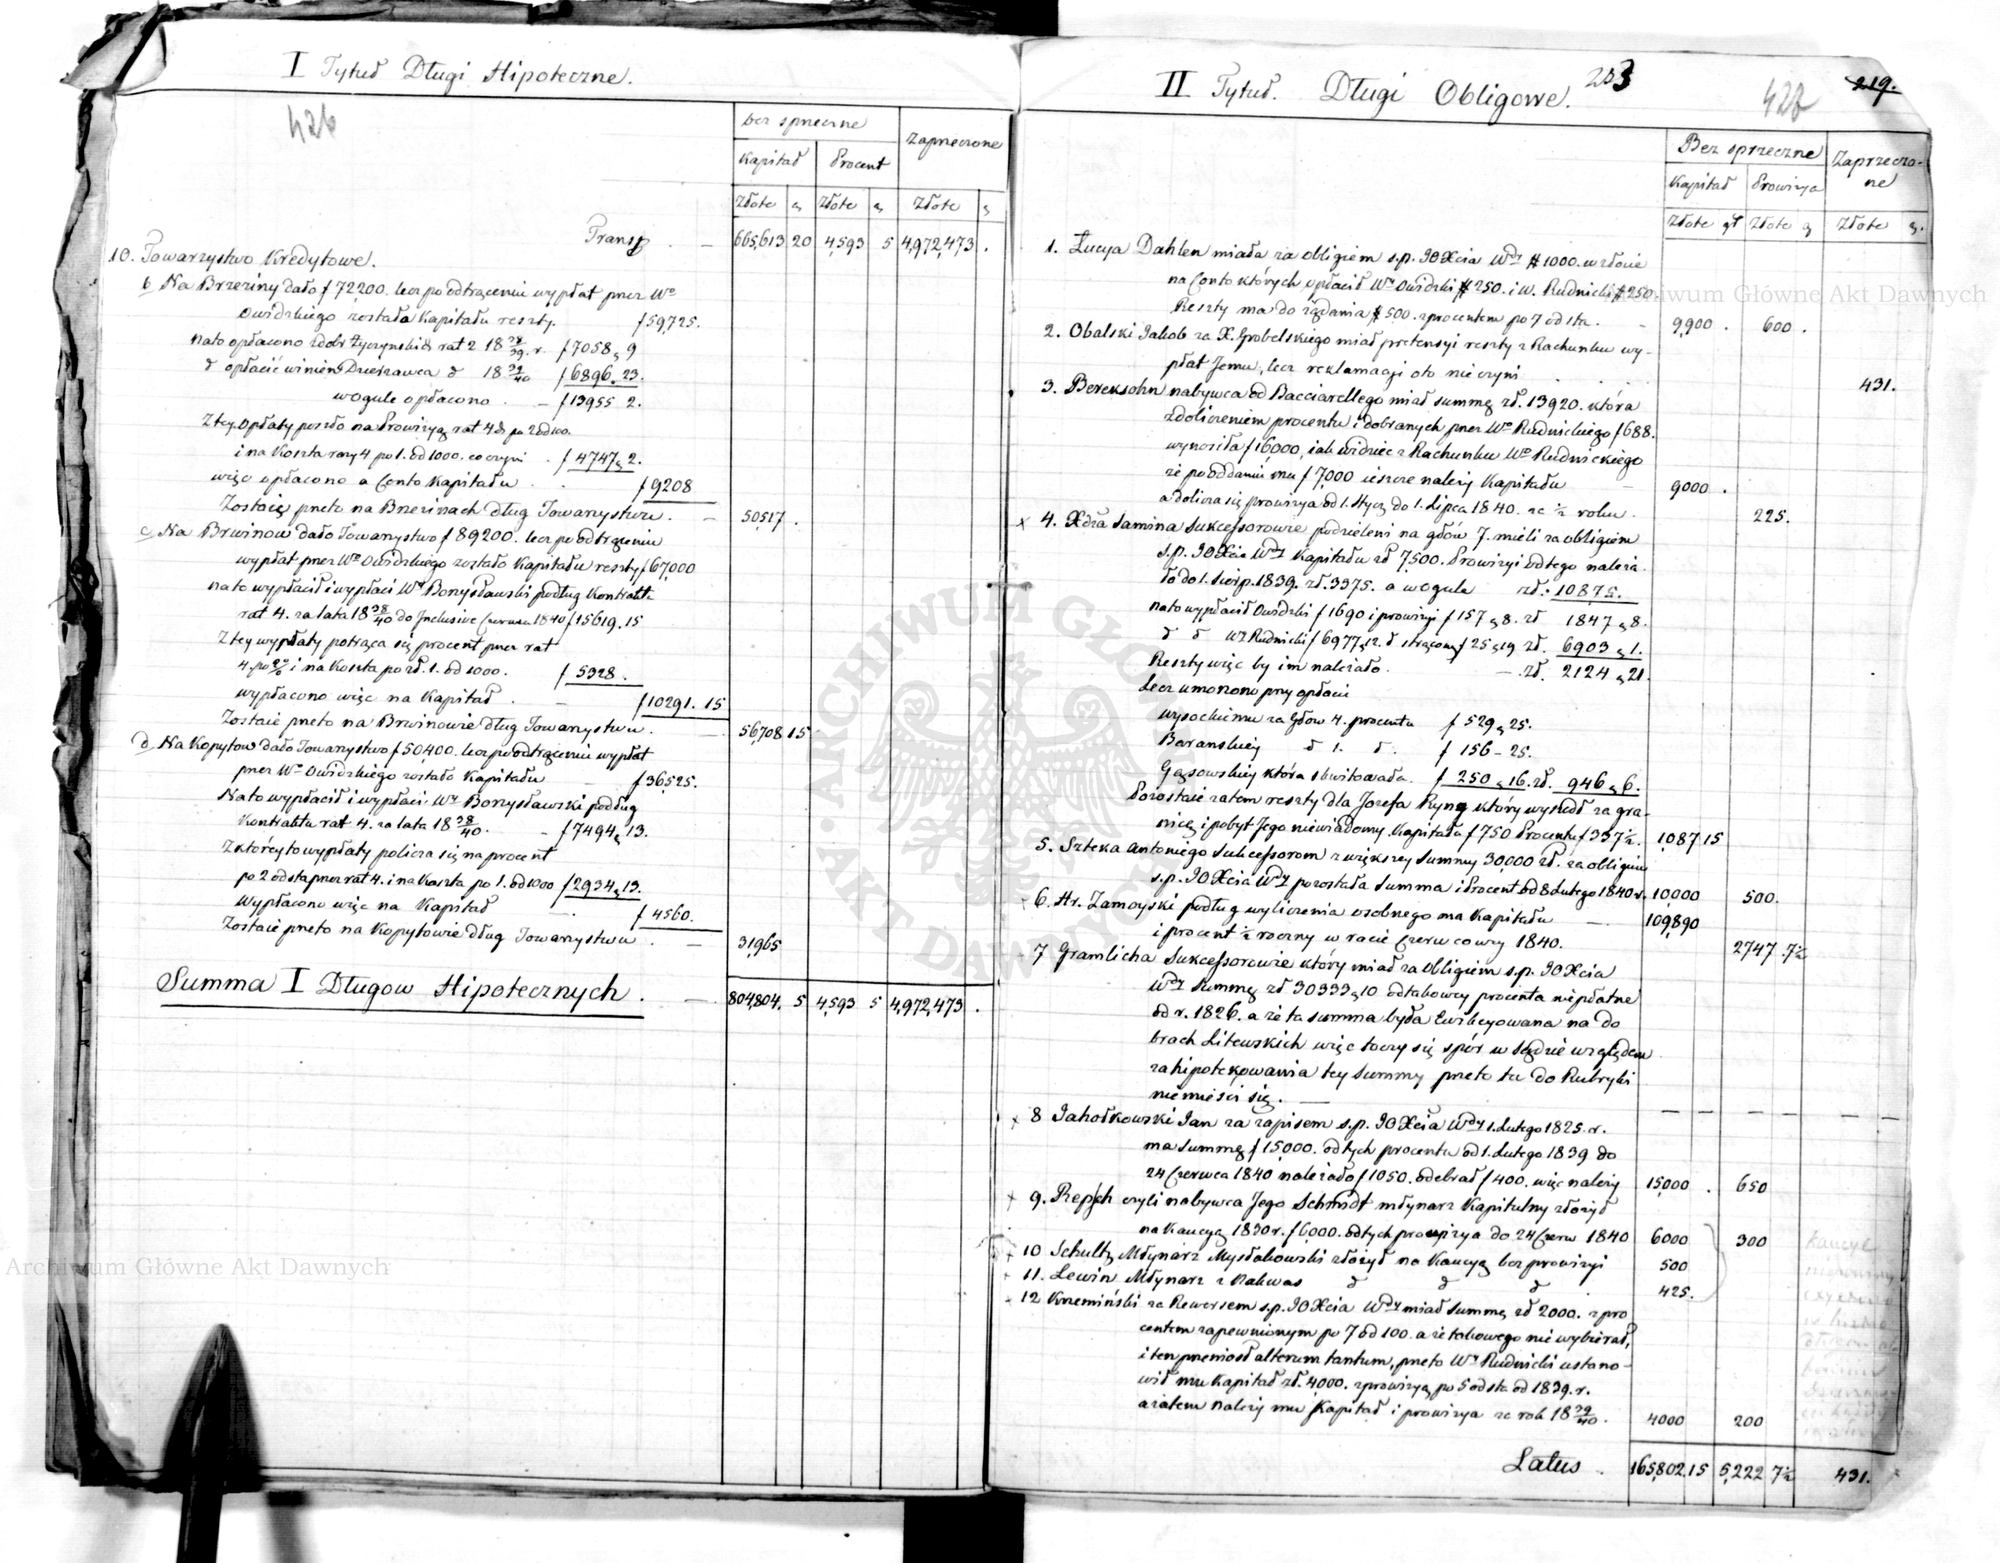 I Tytuł Długi Hipoteczne.
426
bez sprzeczne
Zaprzeczone
Kapitał Procent
Złote g Złote g Złote g
Transp . — 665,613 20 4,593 5 4,972,473 .
10. Towarzystwo Kredytowe.
b Na Brzeziny dało f 72200. lecz po odtrąceniu wypłat przez Wo
Owidzkiego została Kapitału reszty. f 59,725.
Nato opłacono z dóbr Życzyńskich rat 2 18 38/39. r. f 7058 g 9
d opłacić winien Dzierżawca d 18 39/40 f 6896. 23.
wogule opłacono . — f 13955 2.
Z tey Opłaty poszło na Prowizyą rat 4ch po 2 od 100.
i na Koszta razy 4 po 1. od 1000. co czyni . f 4747 g 2.
więc opłacono a Conto Kapitału . . f 9208
Zostaie przeto na Brzezinach dług Towarzystwu. — 50,517 .
c Na Brwinow dało Towarzystwo f 89200. lecz po odtrąceniu
wypłat przez Wo Owidzkiego zostało Kapitału reszty f 67,000
nato wypłacił i wypłaci Wy Bonysławski podług Kontraktu
rat 4. za lata 18 38/40 do Inclusive Czerwca 1840 f 15619. 15
Z tey wypłaty potrąca się procent przez rat
4. po 2% i na Koszta po zł. 1. od 1000. f 5328 .
wypłacono więc na Kapitał . — f 10291. 15
Zostaie przeto na Brwinowie dług Towarzystwu. — 56,708 15
d Na Kopytow dało Towarzystwo f 50,400. lecz po odtrąceniu wypłat
przez Wo Owidzkiego zostało Kapitału — f 36,525.
Na to wypłacił i wypłaci Wy Bonysławski podług
Kontraktu rat 4. za lata 18 38/40. — f 7494 g 13.
Z którey to wypłaty policza się na procent
po 2 od sta przez rat 4. i na Koszta po 1. od 1000 f 2934 g 13.
Wypłacono więc na Kapitał — f 4560.
Zostaie przeto na Kopytowie dług Towarzystwu . — 31,965
Summa I Długow Hipotecznych . — 804,804. 5 4,593 5 4,972,473 .
II Tytuł. Długi Obligowe. 203
427
219.
Bez sprzeczne Zaprzeczo-
ne
Kapitał Prowizya
Złote gr Złote g Złote g.
1. Łucya Dahlen miała za obligiem s.p. JO Xcia Wdy # 1000. w złocie
na Conto których opłacił Wy Owidzki # 250. i W. Rudnicki # 250.
Reszty ma do żądania # 500. z procentem po 7 od sta . — 9,900 . 600 .
2. Obalski Jakob za X. Grobelskiego miał pretensyi reszty z Rachunku wy-
płat Jemu, lecz reklamacji oto nie czyni . . . . 431.
3. Bereksohn nabywca od Bacciarellego miał summę zł. 13920. która
z doliczeniem procentu i dobranych przez Wo Rudnickiego f 688.
wynosiła f 16,000, iak widzieć z Rachunku Wo Rudnickiego
że po oddaniu mu f 7,000 ieszcze należy Kapitału — 9000 .
a dolicza się prowizya od 1. Stycz. do 1. Lipca 1840. za ½ roku . 225.
x 4. Xdza Samina Sukcessorowie podzieleni na głów 7. mieli za obligiem
s.p. JO Xcia Wdy Kapitału zł 7,500. Prowizyi od tego należa-
ło do 1. Sierp. 1839. zł. 3375. a wogule zł. 10875.
nato wypłacił Owidzki f 1690 i prowizyi f 157 g 8. zł 1847 g 8.
d d Wy Rudnicki f 6977 g 12. d strącony f 25 g 19 zł. 6903 g 1.
Reszty więc by im należało. — zł. 2124 g 21.
Lecz umorzono przy opłacie
Wysockiemu za Głow 4. procentu f 529 g 25.
Baranskiey d 1. d. f 156 - 25.
Gąsowskiey która skwitowała. f 250 g 16. zł. 946 g 6.
Pozostaie zatem reszty dla Jozefa Ryng który wyszedł za gra-
nicę i pobyt Jego niewiadomy. Kapitału f 750 Procentu f 337½. 1,087 15
5. Szteka Antoniego Sukcessorom z większey Summy 30,000 zł. za obligiem
s.p. JO Xcia Wdy pozostała Summa i Procent od 8 Lutego 1840 r. 10,000 500.
6. Hr. Zamoyski podług wyliczenia osobnego ma Kapitału — 109,890
i procent ½ roczny w racie Czerwcowey 1840. 2747 7½
7 Gramlicha Sukcessorowie który miał za Obligiem s.p. JO Xcia
Wdy Summę zł 30333 g 10 od takowey procenta niepłatne
od r. 1826. a że ta summa była Ewikcyowana na do
brach Litewskich więc toczy się spór w Sądzie względem
zahipotekowania tey Summy przeto tu do Rubryki
niemieści się. —
x 8 Jahołkowski Jan za zapisem s.p. JO Xcia Wdy 1. Lutego 1825. r.
ma Summę f 15,000. od tych procentu od 1. Lutego 1839 do
24 Czerwca 1840 należało f 1050. odebrał f 400. więc należy 15,000 . 650
x 9. Repsch czyli nabywca Jego Schmidt młynarz Kapitulny złożył
na Kaucyą 1830 r. f 6,000. od tych prowizya do 24 Czerw 1840 6000 300
x 10 Schultz Młynarz Mysłakowski złożył na Kaucyą bez prowizyi 500
x 11. Lewin Młynarz z Rakwas d d d . 425.
x 12 Krzemiński za Rewersem s.p. JO Xcia Wdy miał Summę zł 2000. z pro
centem zapewnionym po 7 od 100. a że takowego nie wybierał,
i ten przeniosł alterum tantum, przeto Wy Rudnicki ustano-
wił mu Kapitał zł. 4,000. z prowizyą po 5 od sta od 1839. r.
a zatem należy mu Kapitał i prowizya za rok 18 39/40 . 4000 200
Kaucye
Latus . 165,802. 15 5,222 7½ 431.
Archiwum Główne Akt Dawnych
Archiwum Główne Akt Dawnych
ARCHIWUM GŁÓWNE AKT DAWNYCH